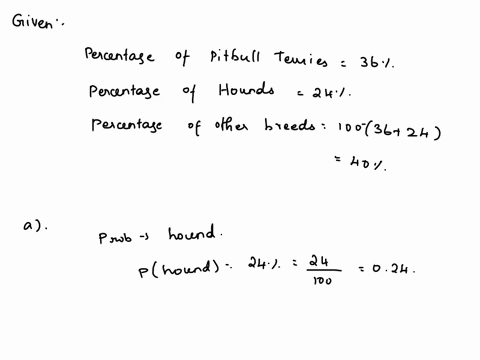 Given:.
Percentage of Pitbull Terries = 36%.
Percentage of Hounds = 24%.
Percentage of other breeds = 100-(36+24)
= 40%.
a). Prob → hound.
P(hound) = 24% = 24/100 = 0.24.